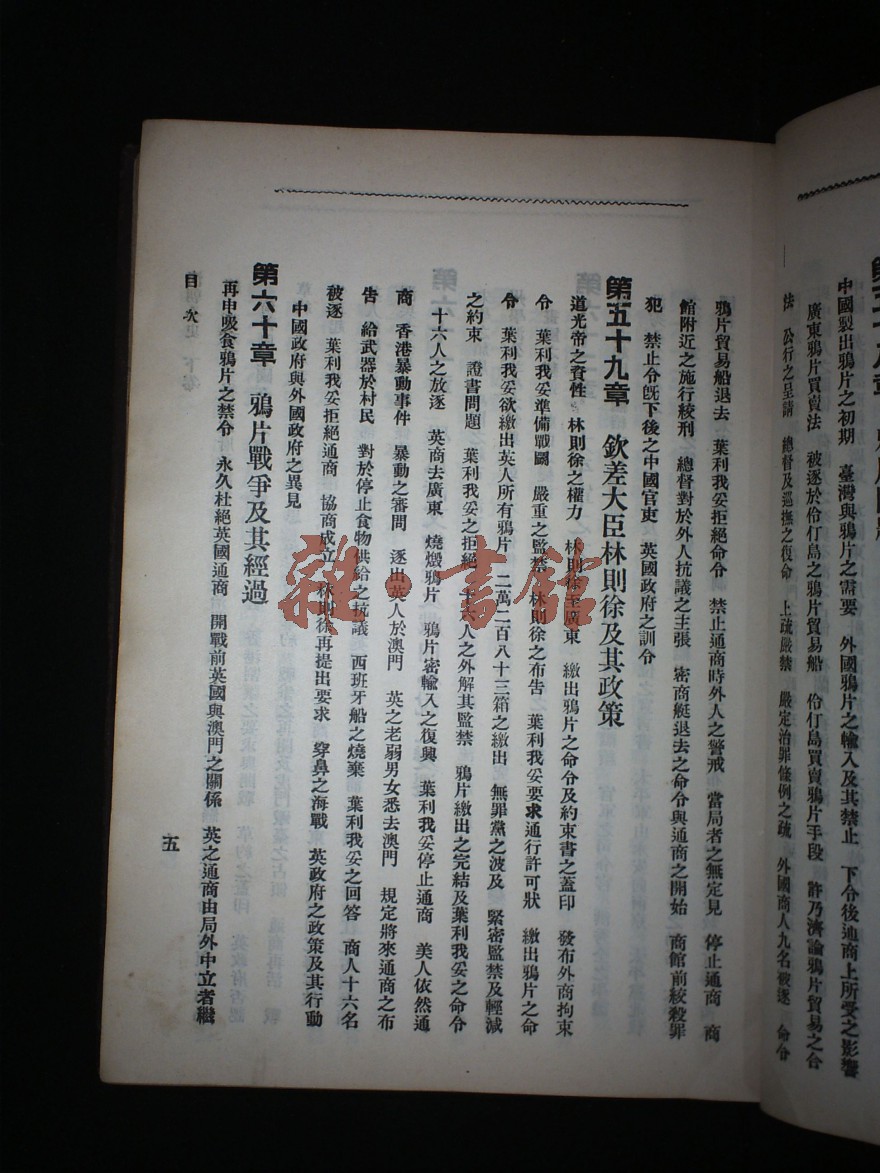 中國製出鴉片之初期　臺灣與鴉片之需要　外國鴉片之輸入及其禁止　下令後通商上所受之影響
廣東鴉片買賣法　被逐於伶仃島之鴉片貿易船　伶仃島買賣鴉片手段　許乃濟論鴉片貿易之合
法　公行之呈請　總督及巡撫之復命　上疏嚴禁　嚴定治罪條例之疏　外國商人九名被逐　命令
鴉片貿易船退去　葉利我妥拒絕命令　禁止通商時外人之警戒　當局者之無定見　停止通商　商
館附近之施行絞刑　總督對於外人抗議之主張　密商艇退去之命令與通商之開始　商館前絞殺罪
犯　禁止令既下後之中國官吏　英國政府之訓令
第五十九章　欽差大臣林則徐及其政策
道光帝之資性　林則徐之權力　林則徐至廣東　繳出鴉片之命令及約束書之蓋印　發布外商拘束
令　葉利我妥準備戰鬬　嚴重之監禁　林則徐之布告　葉利我妥要求通行許可狀　繳出鴉片之命
令　葉利我妥欲繳出英人所有鴉片　二萬二百八十三箱之繳出　無罪黨之波及　緊密監禁及輕減
之約束　證書問題　葉利我妥之拒絕　十六人之外解其監禁　鴉片繳出之完結及葉利我妥之命令
十六人之放逐　英商去廣東　燒燬鴉片　鴉片密輸入之復興　葉利我妥停止通商　美人依然通
商　香港暴動事件　暴動之審問　逐出英人於澳門　英之老弱男女悉去澳門　規定將來通商之布
告　給武器於村民　對於停止食物供給之抗議　西班牙船之燒棄　葉利我妥之回答　商人十六名
被逐　葉利我妥拒絕通商　協商成立　林則徐再提出要求　穿鼻之海戰　英政府之政策及其行動
中國政府與外國政府之異見
第六十章　鴉片戰爭及其經過
再申吸食鴉片之禁令　永久杜絕英國通商　開戰前英國與澳門之關係　英之通商由局外中立者繼
目次
五
雜·書館